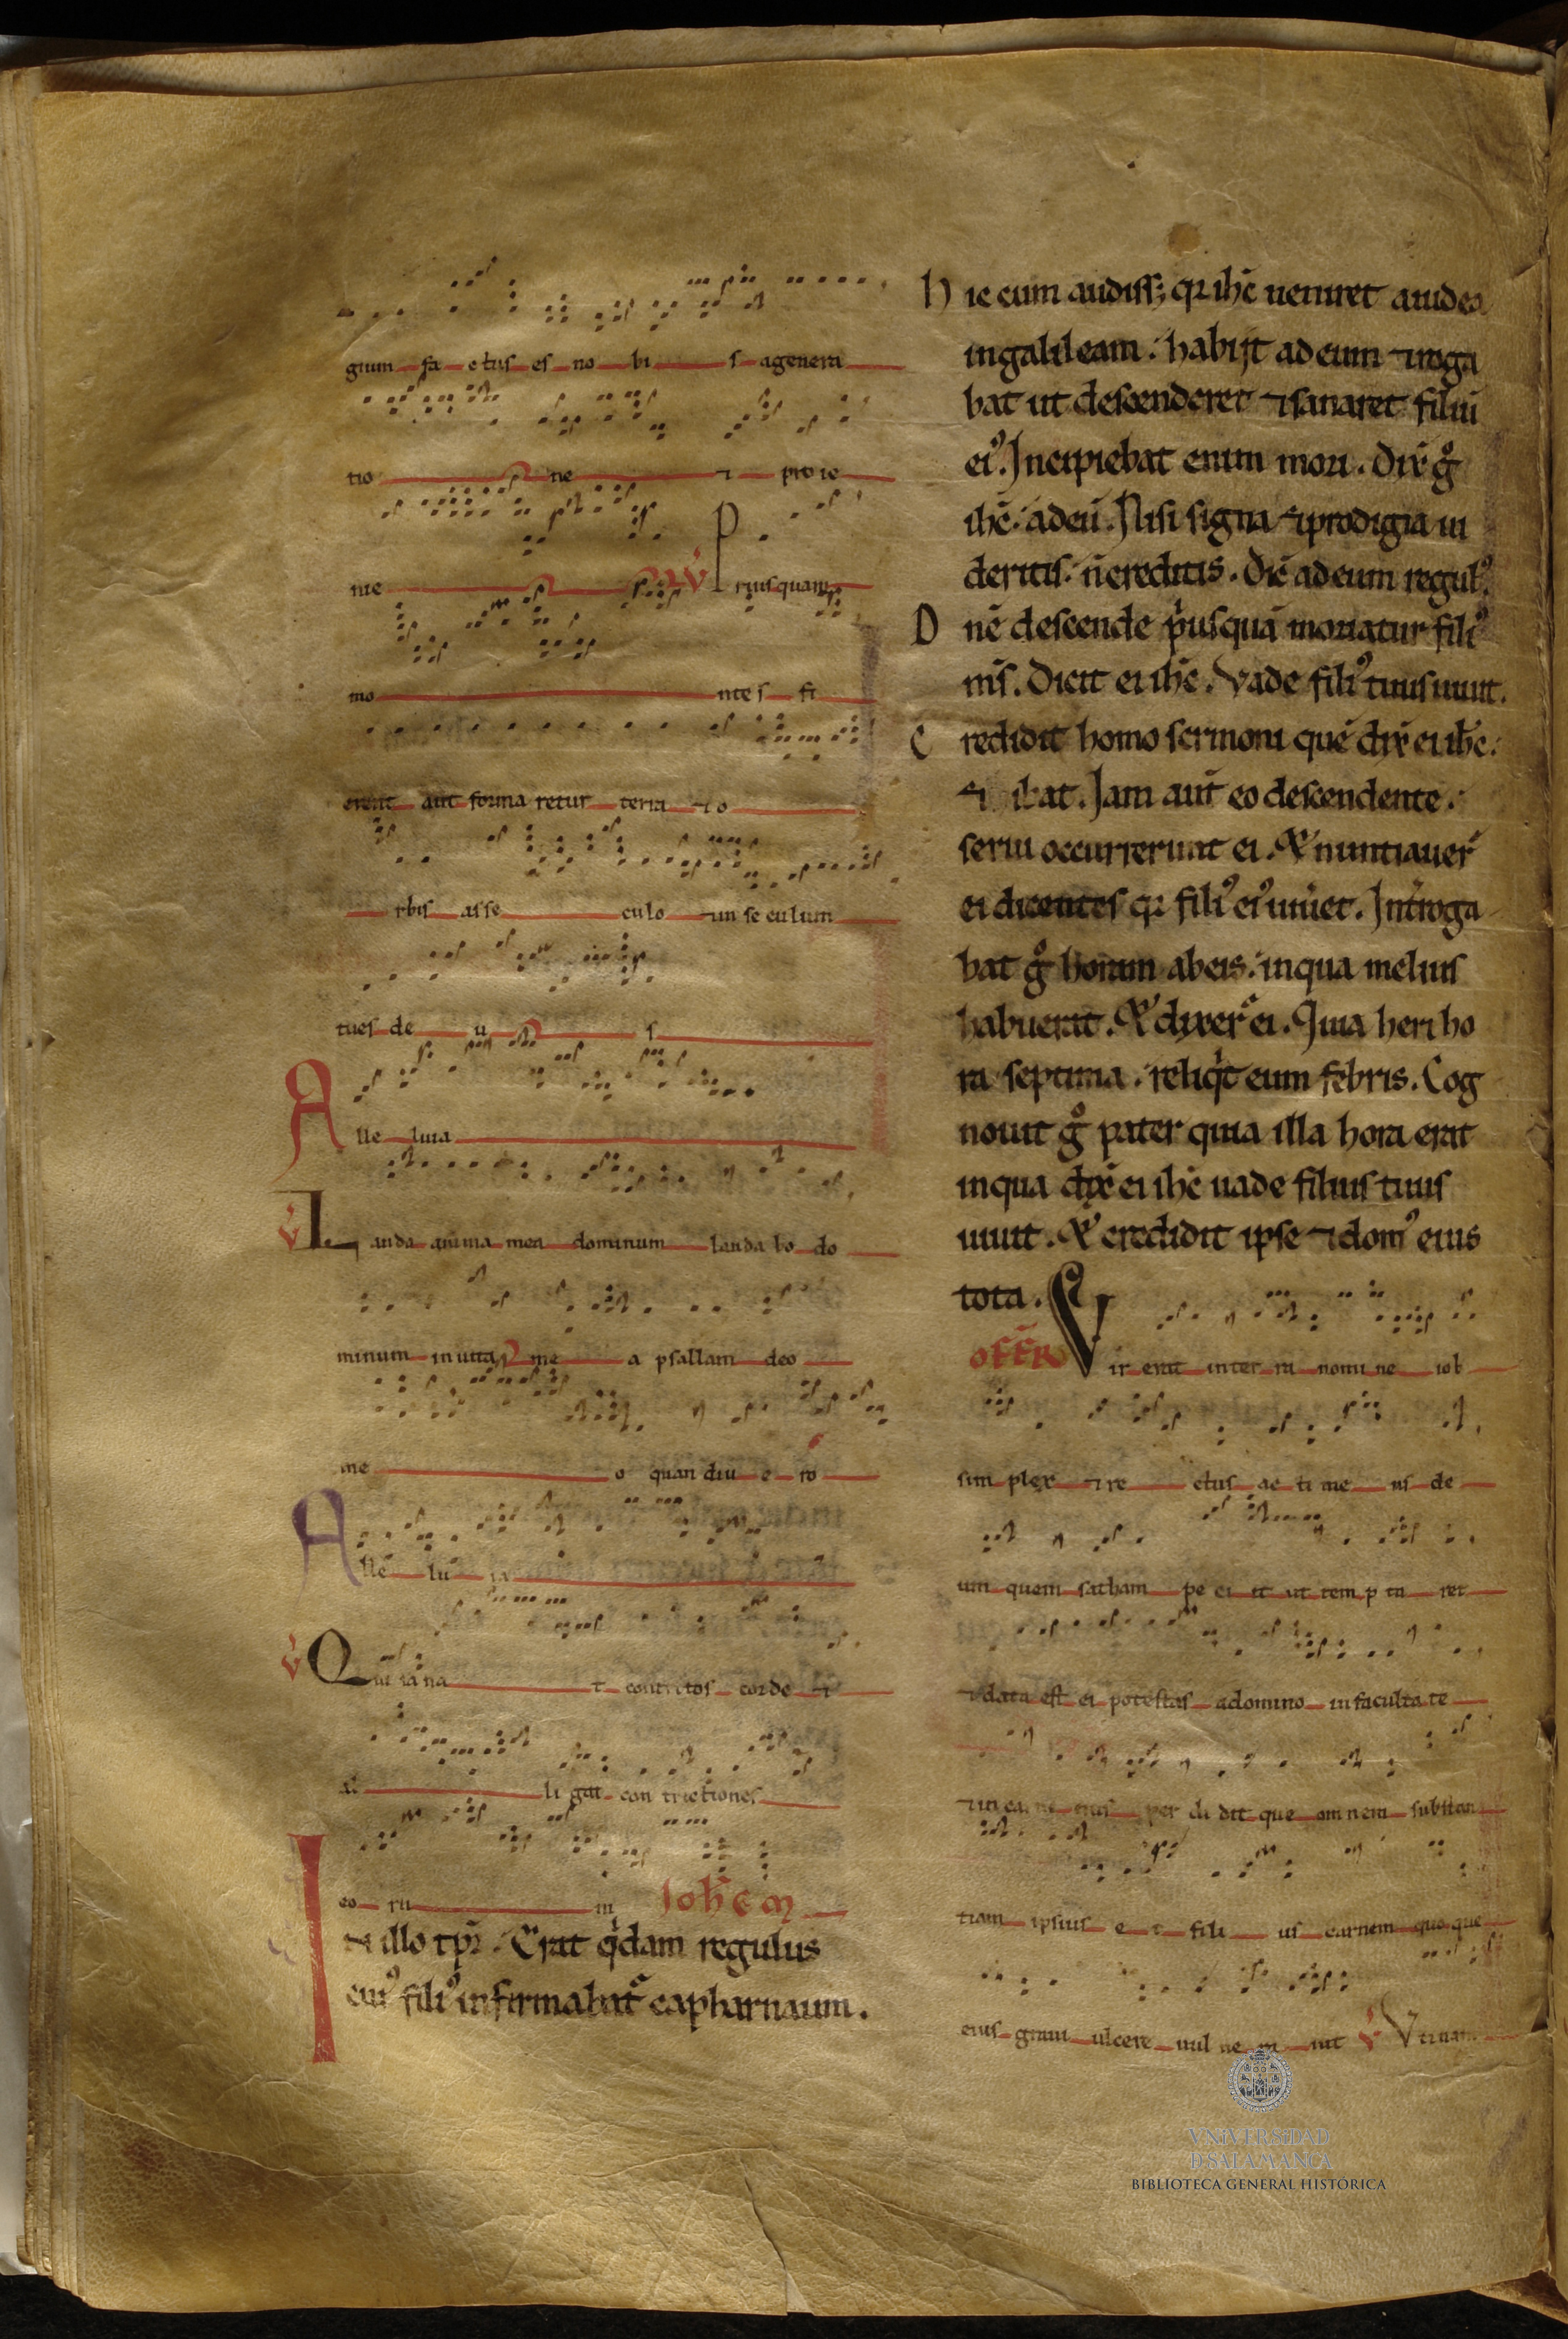 gium fa ctus es no bi s agenera
tio ne 7 pro ie
nie V Priusquam
mo ntes fi
erent aut forma retur terra 7 o
rbis asse culo 7 in se culum
tues de u s
Alle luia
V Lauda anima mea dominum lauda bo do
minum in uita me a psallam deo
me o quan diu e ro
Alle lu ia
V Qui sana t contritos corde 7
al li gat con trictiones
eo ru m Ioħem
In illo tpr̄. Erat q̇dam regulus
cui᾽ fili᾽ infirmabat᷑ capharnaum.
hic cum audiss; qꝛ ihc̄ ueniret aiudea
ingalileam. habijt ad eum 7 roga
bat ut descenderet 7 sanaret filiū
ei᾽. Incipiebat enim mori. Dix̄ gͦ
ihc̄ adeū. Nisi signa 7 prodigia ui
deritis. n̄ creditis. Dic̄ ad eum regul᾽.
Dn̄e descende p̍usquā moriatur fili᾽
m̄s. Dicit ei ihc̄. Vade fili᾽ tuus uiuit.
Credidit homo sermoni quē dix̄ ei ihc̄.
7 ibat. Iam aut̄ eo descendente.
serui occurrerunt ei. & nuntiauer̄
ei dicentes qꝛ fili᾽ ei᾽ uiuet. Int̄roga
bat gͦ horam abeis. inqua melius
habuerit. & dixer᷑ ei. Quia heri ho
ra septima. reliq̍t eum febris. Cog
nouit gͦ pater quia illa hora erat
inqua dix̄ ei ihc̄ uade filius tuus
uiuit. & credidit ipse 7 dom᾽ eius
tota.
OFFR̄ Vir erat inter ra nomi ne iob
sim plex 7 re ctus ac ti me ns de
um quem satham pe ci it ut tem p ta ret
7 data est ei potestas adomino in faculta te
7 in carne eius per di dit que om nem substan
tiam ipsius e t fili us carnem quo que
eius graui ulcere uul ne ra uit V Vtinam
VNiVERSiDAD
D SALAMANCA
BIBLIOTECA GENERAL HISTÓRICA